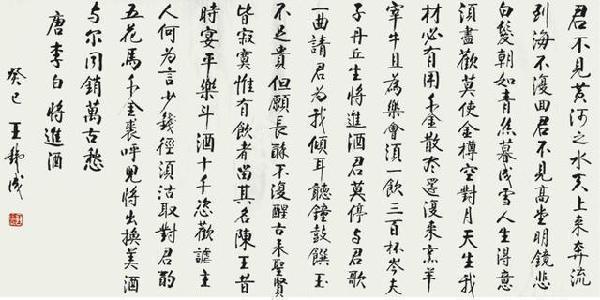 君不見黃河之水天上來奔流
到海不復回君不見高堂明鏡悲
白髮朝如青絲暮成雪人生得意
須盡歡莫使金樽空對月天生我
材必有用千金散盡還復來烹羊
宰牛且為樂會須一飲三百杯岑夫
子丹丘生將進酒君莫停与君歌
一曲請君為我傾耳聽鐘鼓饌玉
不足貴但願長醉不復醒古來聖賢
皆寂寞惟有飲者留其名陳王昔
時宴平樂斗酒十千恣歡謔主
人何為言少錢徑須沽取對君酌
五花馬千金裘呼兒將出換美酒
与尔同銷萬古愁
唐李白將進酒
癸巳 王鐵成